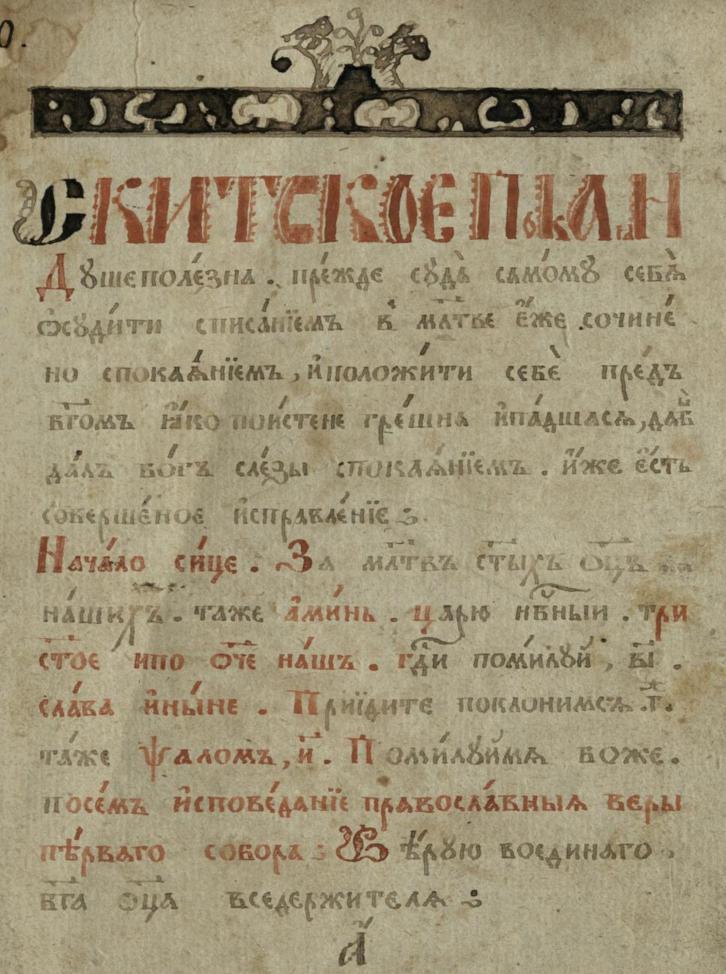 СКИТСКОЕ ПоКАѧН
Душеполе́зна . пре́жде судѧ̀ само́му себѧ̀
ѡ҆суди́ти списа́нїемъ в҆ мл҃тве е҆́же сочине́
но спокаѧ́нїемъ , и҆положи́ти себѐ пре́дъ
бг҃омъ ꙗ҆́ко пои́стене гре́шна и҆па́дшасѧ , дабы̀
да́лъ бо́гъ сле́зы спокаѧ́нїемъ . и҆́же е҆́сть
соверше́ное и҆справле́нїе
Нача́ло си́це . За мл҃твъ ст҃ы́хъ ѻ҆ц҃ъ
на́шихъ . таже а҆ми́нь . царю нб҃ныи . три
ст҃ое ипо ѻ҆ч҃е на́шъ . гд҃и поми́луй , в҃і .
сла́ва и҆ны́не . Прїиди́те поклонимсѧ . г҃ .
та́же ѱа́ломъ , н҃ . Поми́луймѧ боже .
посе́мъ и҆спове́данїе правосла́вныѧ веры
пе́рваго собора Вѣ́рую воединаго .
бг҃а ѻ҆ц҃а вседержителѧ
а҃